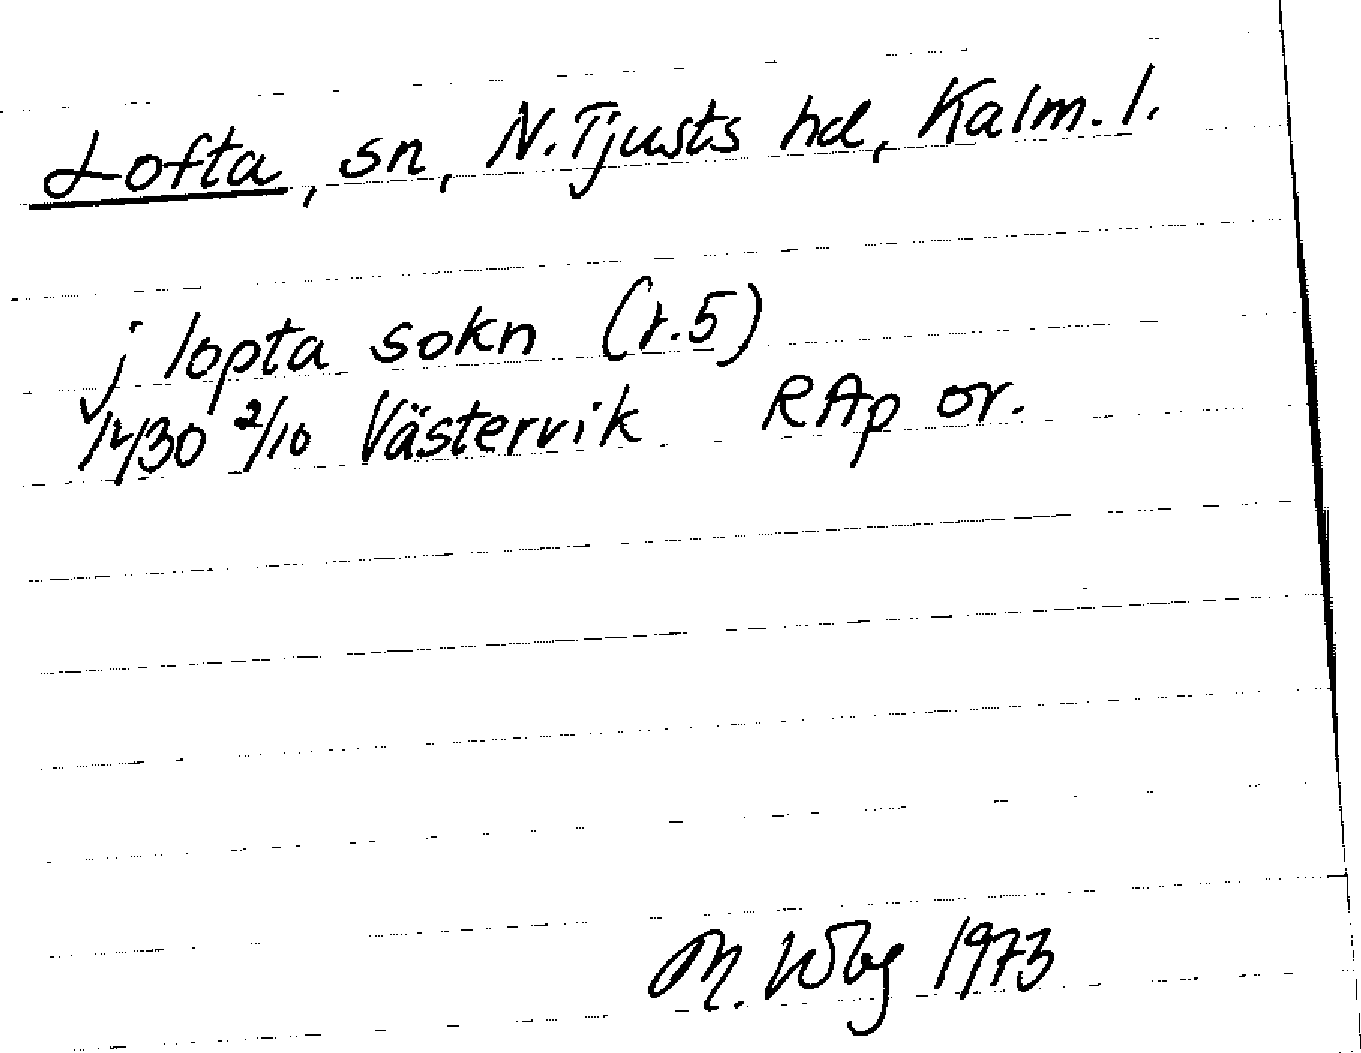 Lofta, sn, N. Tjusts hd, Kalm. l.
j lopta sokn (r.5)
1430 2/10 Västervik RAp or.
M. Wbg 1973